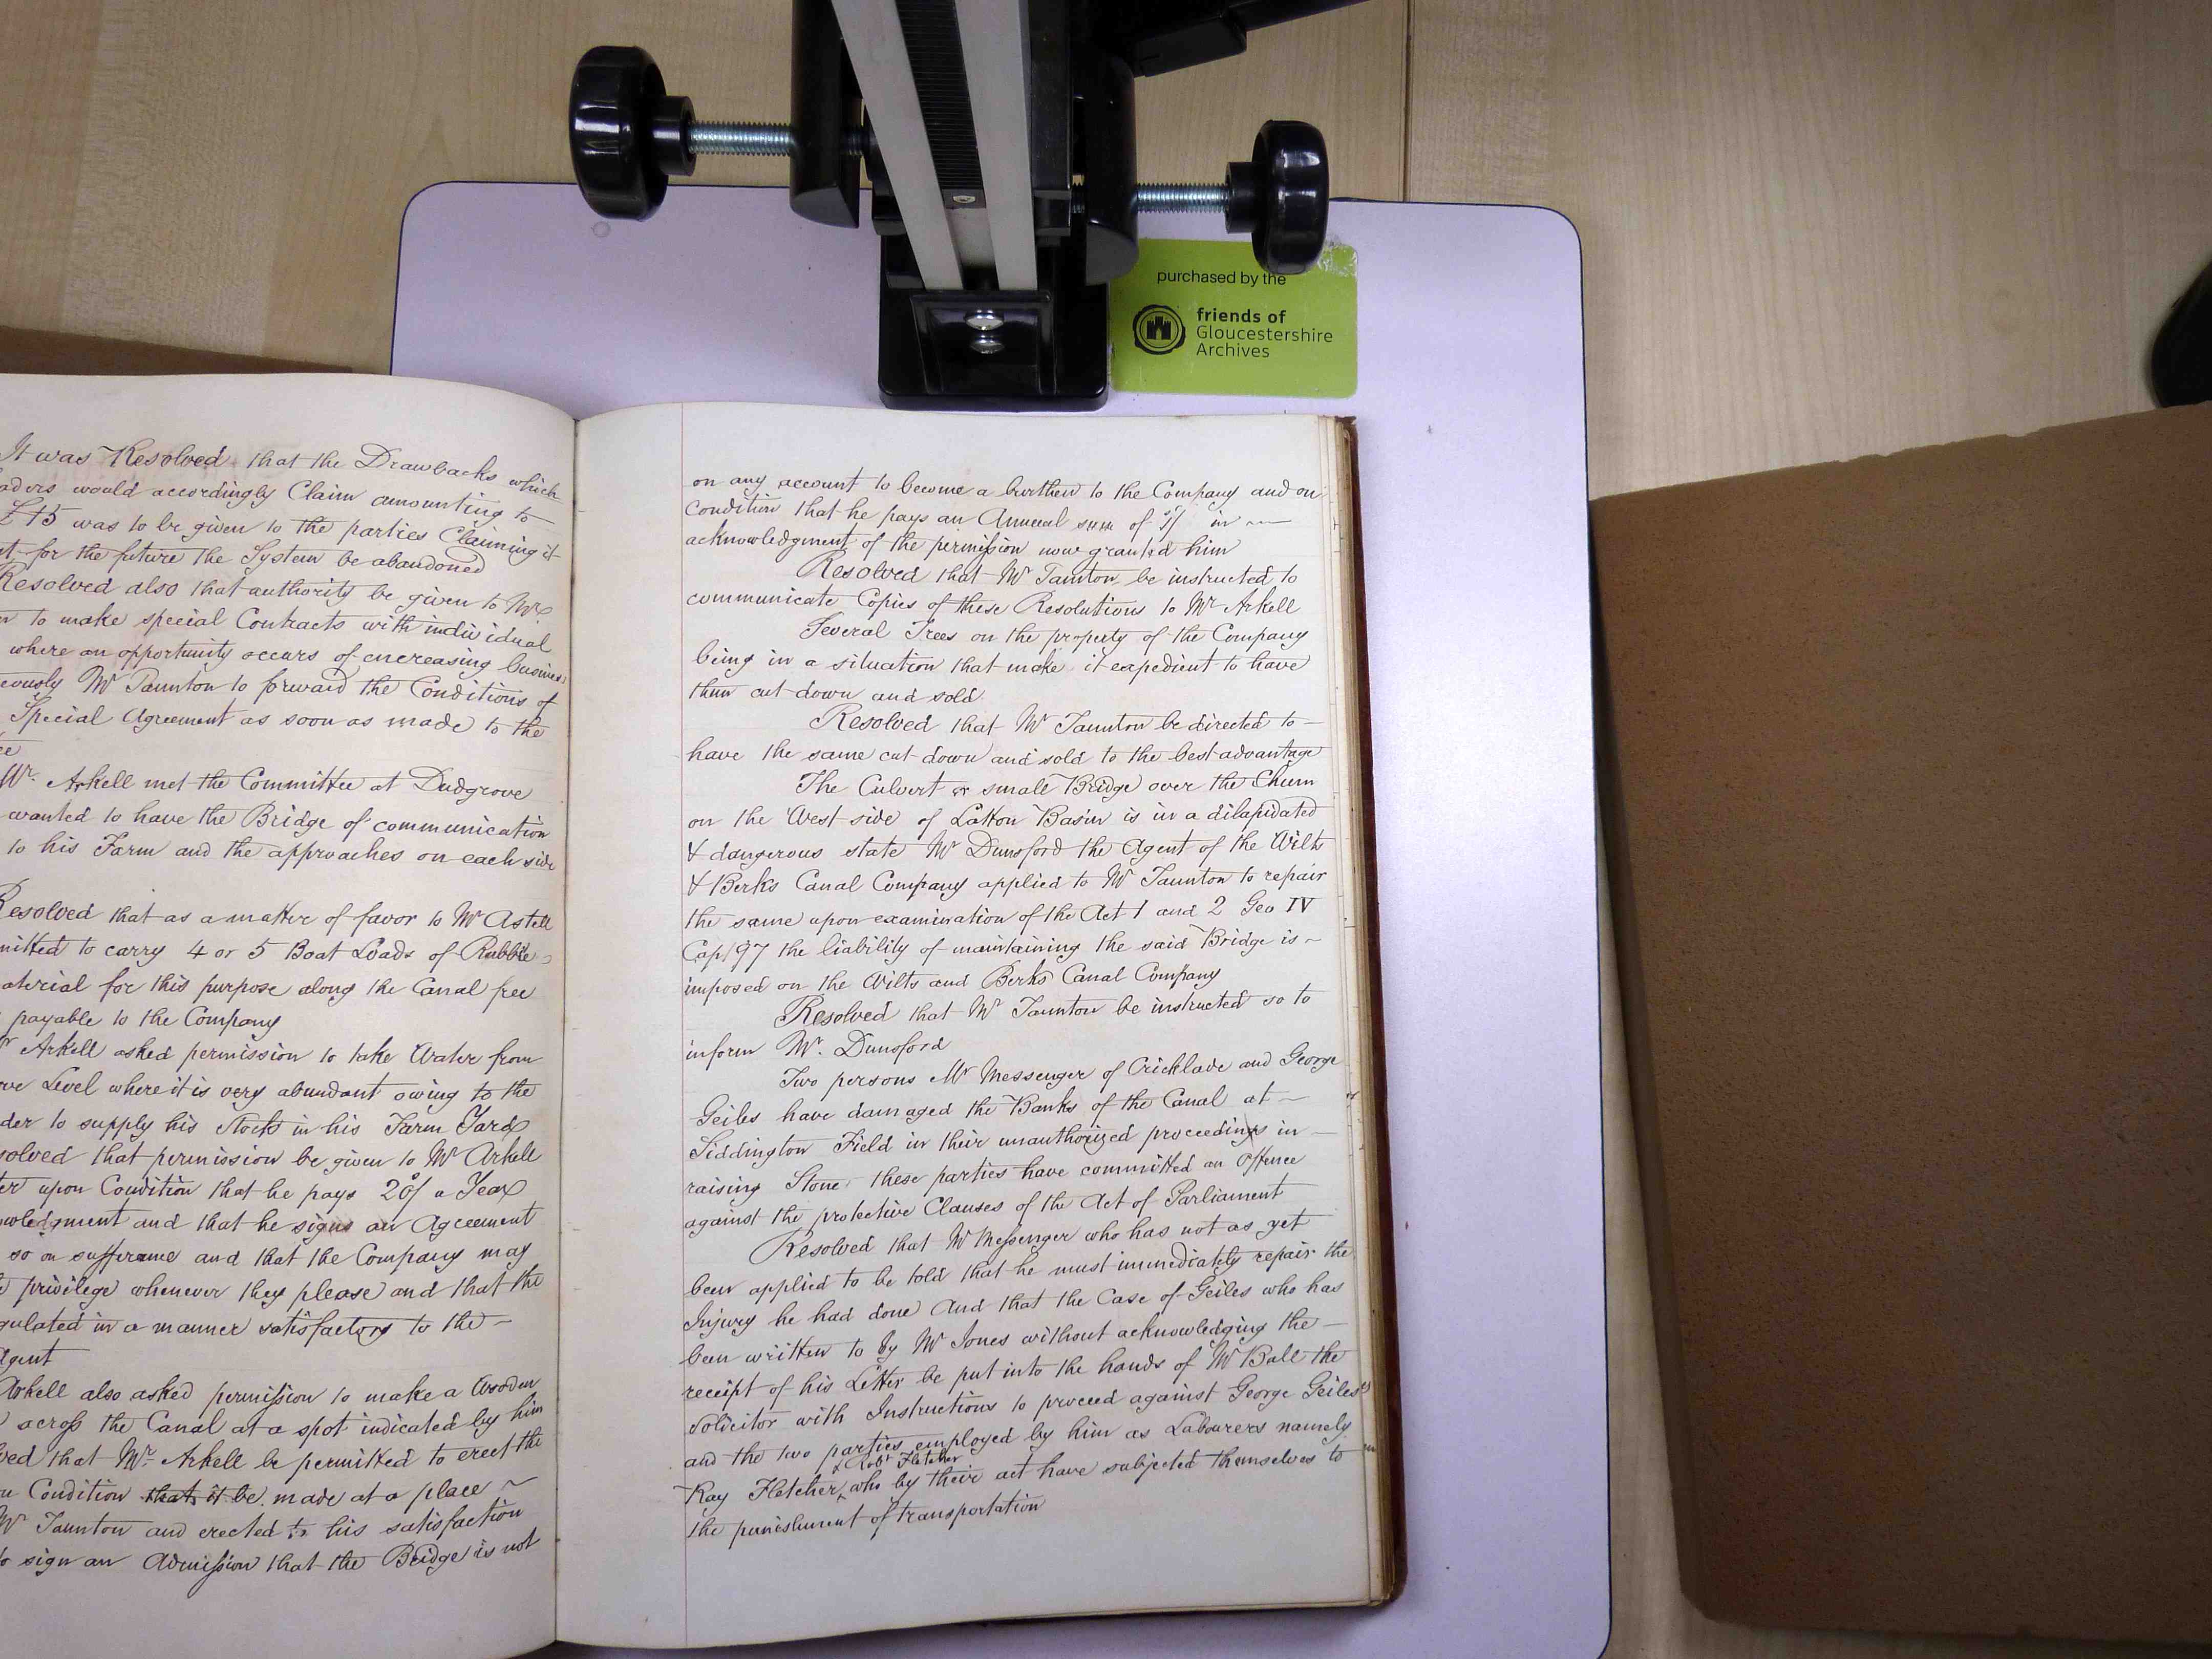 purchased by the
friends of
Gloucestershire
Archives
It was Resolved that the Drawbacks which
would accordingly Claim amounting to
£15 was to be given to the parties Claiming it
for the future the System be abandoned
Resolved also that authority be given to Mr
to make special Contracts with individual
where an opportunity occurs of encreasing busines
Mr Taunton to forward the Conditions of
Special Agreement as soon as made to the
Mr. Arkell met the Committee at Dudgrove
wanted to have the Bridge of communication
to his Farm and the approaches on each side
Resolved that as a matter of favor to Mr Astell
to carry 4 or 5 Boat Loads of Rubble
for this purpose along the Canal free
payable to the Company
Arkell asked permission to take Water from
Level where it is very abundant owing to the
to supply his Stock in his Farm Yard
that permission be given to Mr Arkell
upon Condition that he pays 20/ a Year
and that he signs an Agreement
so on sufferance and that the Company may
privilege whenever they please and that the
in a manner satisfactory to the
Agent
Arkell also asked permission to make a Wooden
across the Canal at a spot indicated by him
that Mr. Arkell be permitted to erect the
Condition that it be made at a place
Mr Taunton and erected to his satisfaction
sign an Admission that the Bridge is not
on any account to become a burthen to the Company and on
condition that he pays an Annual sum of 5/ in
acknowledgment of the permission now granted him
Resolved that Mr Taunton be instructed to
communicate Copies of these Resolutions to Mr Arkell
Several Trees on the property of the Company
being in a situation that make it expedient to have
them cut down and sold
Resolved that Mr Taunton be directed to
have the same cut down and sold to the best advantage
The Culvert or small Bridge over the Churn
on the West side of Latton Basin is in a dilapidated
& dangerous state Mr Dunsford the Agent of the Wilts
& Berks Canal Company applied to Mr Taunton to repair
the same upon examination of the Act 1 and 2 Geo IV
Cap 97 the liability of maintaining the said Bridge is
imposed on the Wilts and Berks Canal Company
Resolved that Mr Taunton be instructed so to
inform Mr. Dunsford
Two persons Mr Messenger of Cricklade and George
Geiles have damaged the Banks of the Canal at
Siddington Field in their unauthorized proceedings in
raising Stone these parties have committed an Offence
against the protective Clauses of the Act of Parliament
Resolved that Mr Messenger who has not as yet
been applied to be told that he must immediately repair the
Injury he had done And that the Case of Geiles who has
been written to by Mr Jones without acknowledging the
receipt of his Letter be put into the hands of Mr Ball the
Solicitor with Instructions to proceed against George Geiles
and the two parties employed by him as Labourers namely
& Robt Fletcher
Ray Fletcher who by their act have subjected themselves to
the punishment of transportation